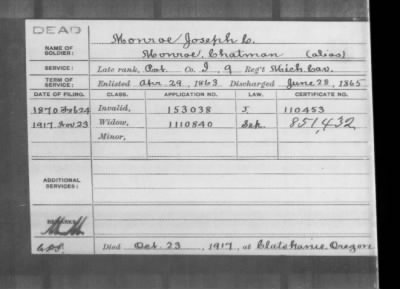 DEAD
Monroe, Joseph C.
NAME OF SOLDIER: Monroe, Chatman (alias)
SERVICE: Late rank, Co. I, 9 Reg't Mich. Cav.
TERM OF SERVICE: Enlisted Apr. 29, 1863 Discharged June 28, 1865
DATE OF FILING. CLASS. APPLICATION NO. LAW. CERTIFICATE NO.
1870 Feb 24 Invalid, 153038 110453
1917 Nov. 23 Widow, 1110840 Sep. 851,432
Minor,
ADDITIONAL SERVICES:
REMARKS:
Died Oct. 23, 1917, at Clatskanie, Oregon